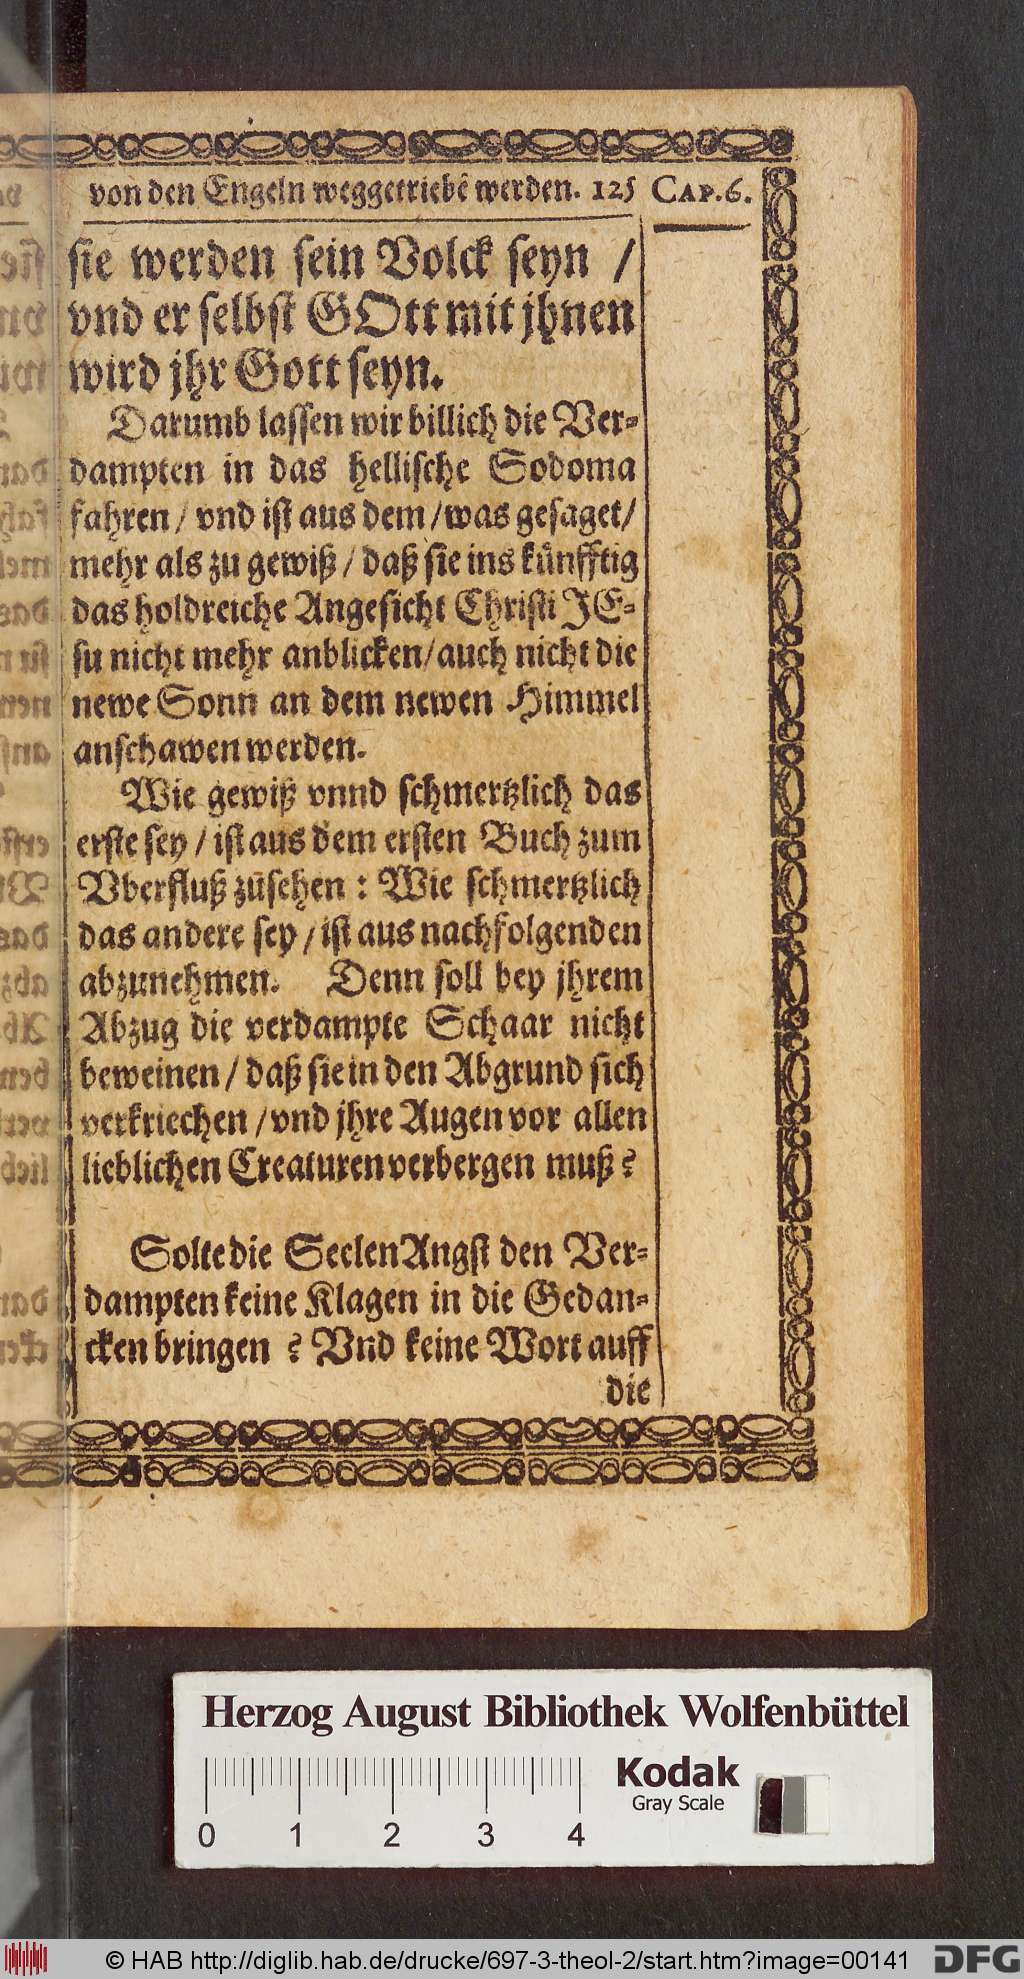 von den Engeln weggetriebẽ werden. 125 CAP. 6.
sie werden sein Volck seyn /
vnd er selbst GOtt mit jhnen
wird jhr Gott seyn.
Darumb lassen wir billich die Ver-
dampten in das hellische Sodoma
fahren / vnd ist aus dem / was gesaget /
mehr als zu gewiß / daß sie ins künfftig
das holdreiche Angesicht Christi JE-
su nicht mehr anblicken / auch nicht die
newe Sonn an dem newen Himmel
anschawen werden.
Wie gewiß vnnd schmertzlich das
erste sey / ist aus dem ersten Buch zum
Vberfluß zusehen : Wie schmertzlich
das andere sey / ist aus nachfolgenden
abzunehmen. Denn soll bey jhrem
Abzug die verdampte Schaar nicht
beweinen / daß sie in den Abgrund sich
verkriechen / vnd jhre Augen vor allen
lieblichen Creaturen verbergen muß?
Solte die Seelen Angst den Ver-
dampten keine Klagen in die Gedan-
cken bringen ? Vnd keine Wort auff
die
Herzog August Bibliothek Wolfenbüttel
Kodak
Gray Scale
0 1 2 3 4
© HAB http://diglib.hab.de/drucke/697-3-theol-2/start.htm?image=00141 DFG